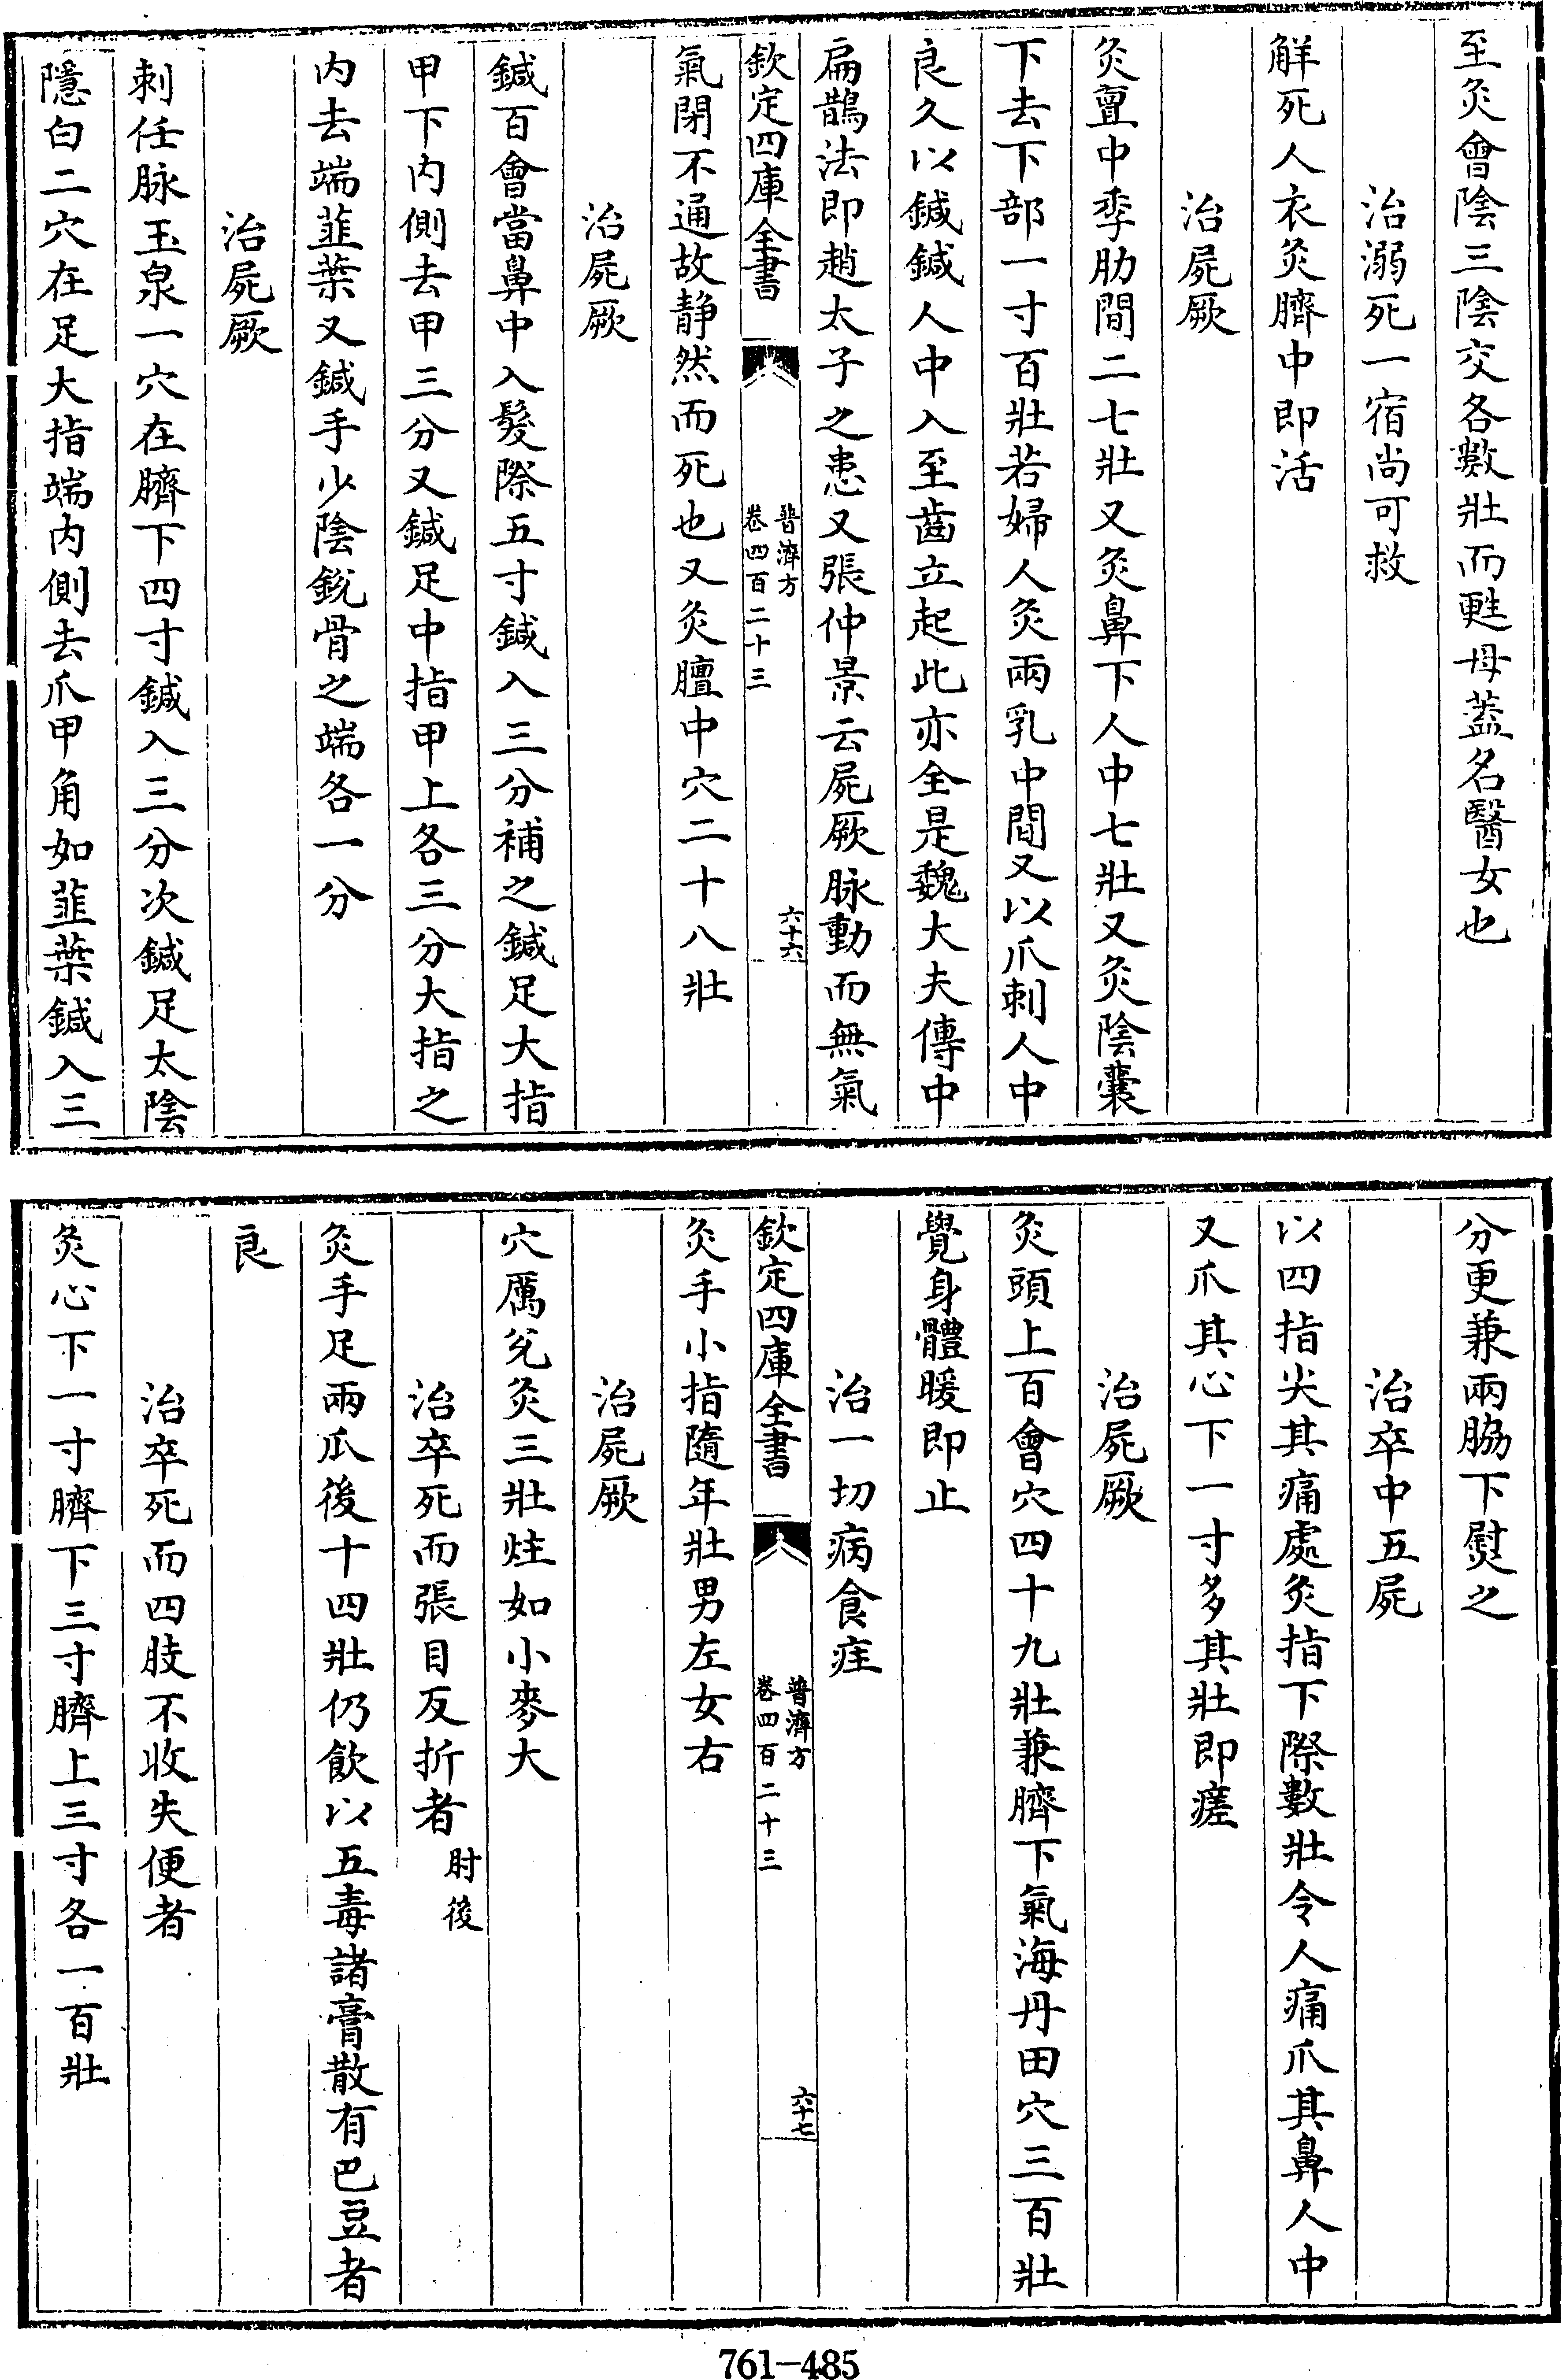 至灸會陰三陰交各數壯而甦母蓋名醫女也
治溺死一宿尚可救
解死人衣灸臍中即活
治屍厥
灸亶中季肋間二七壯又灸鼻下人中七壯又灸陰囊
下去下部一寸百壯若婦人灸兩乳中間又以爪刺人中
良久以鍼鍼人中入至齒立起此亦全是魏大夫傳中
扁鵲法即趙太子之患又張仲景云屍厥脉動而無氣
欽定四庫全書
普濟方
卷四百二十三
六十六
氣閉不通故静然而死也又灸膻中穴二十八壯
治屍厥
鍼百會當鼻中入髮際五寸鍼入三分補之鍼足大指
甲下内側去甲三分又鍼足中指甲上各三分大指之
内去端韮葉又鍼手少陰鋭骨之端各一分
治屍厥
刺任脉玉泉一穴在臍下四寸鍼入三分次鍼足太陰
隱白二穴在足大指端内側去爪甲角如韮葉鍼入三
分更兼兩脇下熨之
治卒中五屍
以四指尖其痛處灸指下際數壯令人痛爪其鼻人中
又爪其心下一寸多其壯即瘥
治屍厥
灸頭上百會穴四十九壯兼臍下氣海丹田穴三百壯
覺身體暖即止
治一切病食疰
欽定四庫全書
普濟方
卷四百二十三
六十七
灸手小指隨年壯男左女右
治屍厥
穴厲兊灸三壯炷如小麥大
治卒死而張目反折者 肘後
灸手足兩瓜後十四壯仍飲以五毒諸膏散有巴豆者
良
治卒死而四肢不收失便者
灸心下一寸臍下三寸臍上三寸各一百壯
761-485